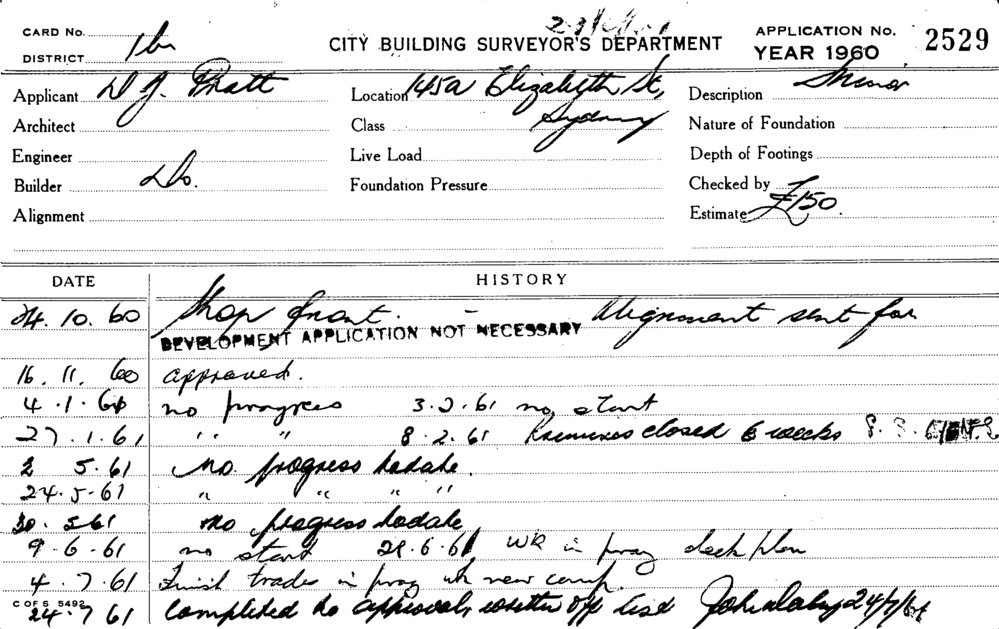 CARD No.
CITY BUILDING SURVEYOR'S DEPARTMENT
APPLICATION No. 2529
YEAR 1960
DISTRICT
Applicant D J. Pratt
Location 145a Elizabeth St,
Sydney
Description
Architect
Class
Nature of Foundation
Engineer
Live Load
Depth of Footings
Builder Do.
Foundation Pressure
Checked by
Alignment
Estimate £150.
DATE HISTORY
24. 10. 60 Shop front. - Alignment sent for
DEVELOPMENT APPLICATION NOT NECESSARY
16. 11. 60 approved.
4. 1. 61 no progress 3.2.61 no start
27. 1. 61 " " 8.2.61 Premises closed 6 weeks
2 5. 61 No progress to date.
24. 5. 61 " " " "
30. 5 61 no progress to date
9. 6. 61 no start 28.6.61 WK in prog
4. 7. 61 Finish trades in prog
C OF S 5492
24. 7 61 Completed to approval, written off list 24/7/61